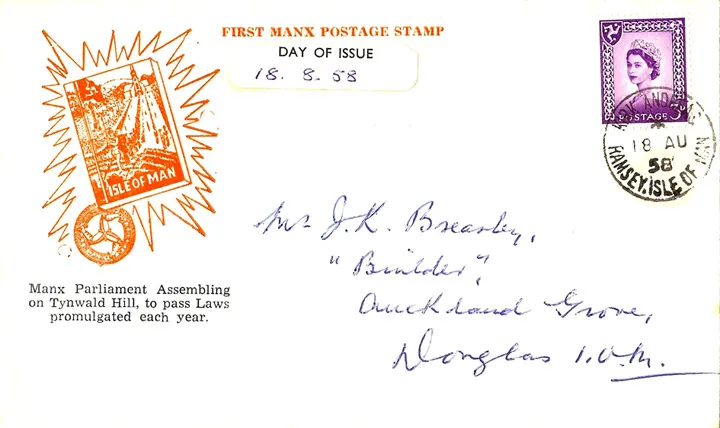 FIRST MANX POSTAGE STAMP
DAY OF ISSUE
18. 8. 58
ISLE OF MAN
Manx Parliament Assembling
on Tynwald Hill, to pass Laws
promulgated each year.
POSTAGE 3D
KIRK ANDREAS
18 AU
58
RAMSEY. ISLE OF MAN
Mr J. K. Brearley,
"Builder",
Auckland Grove,
Douglas I.O.M.